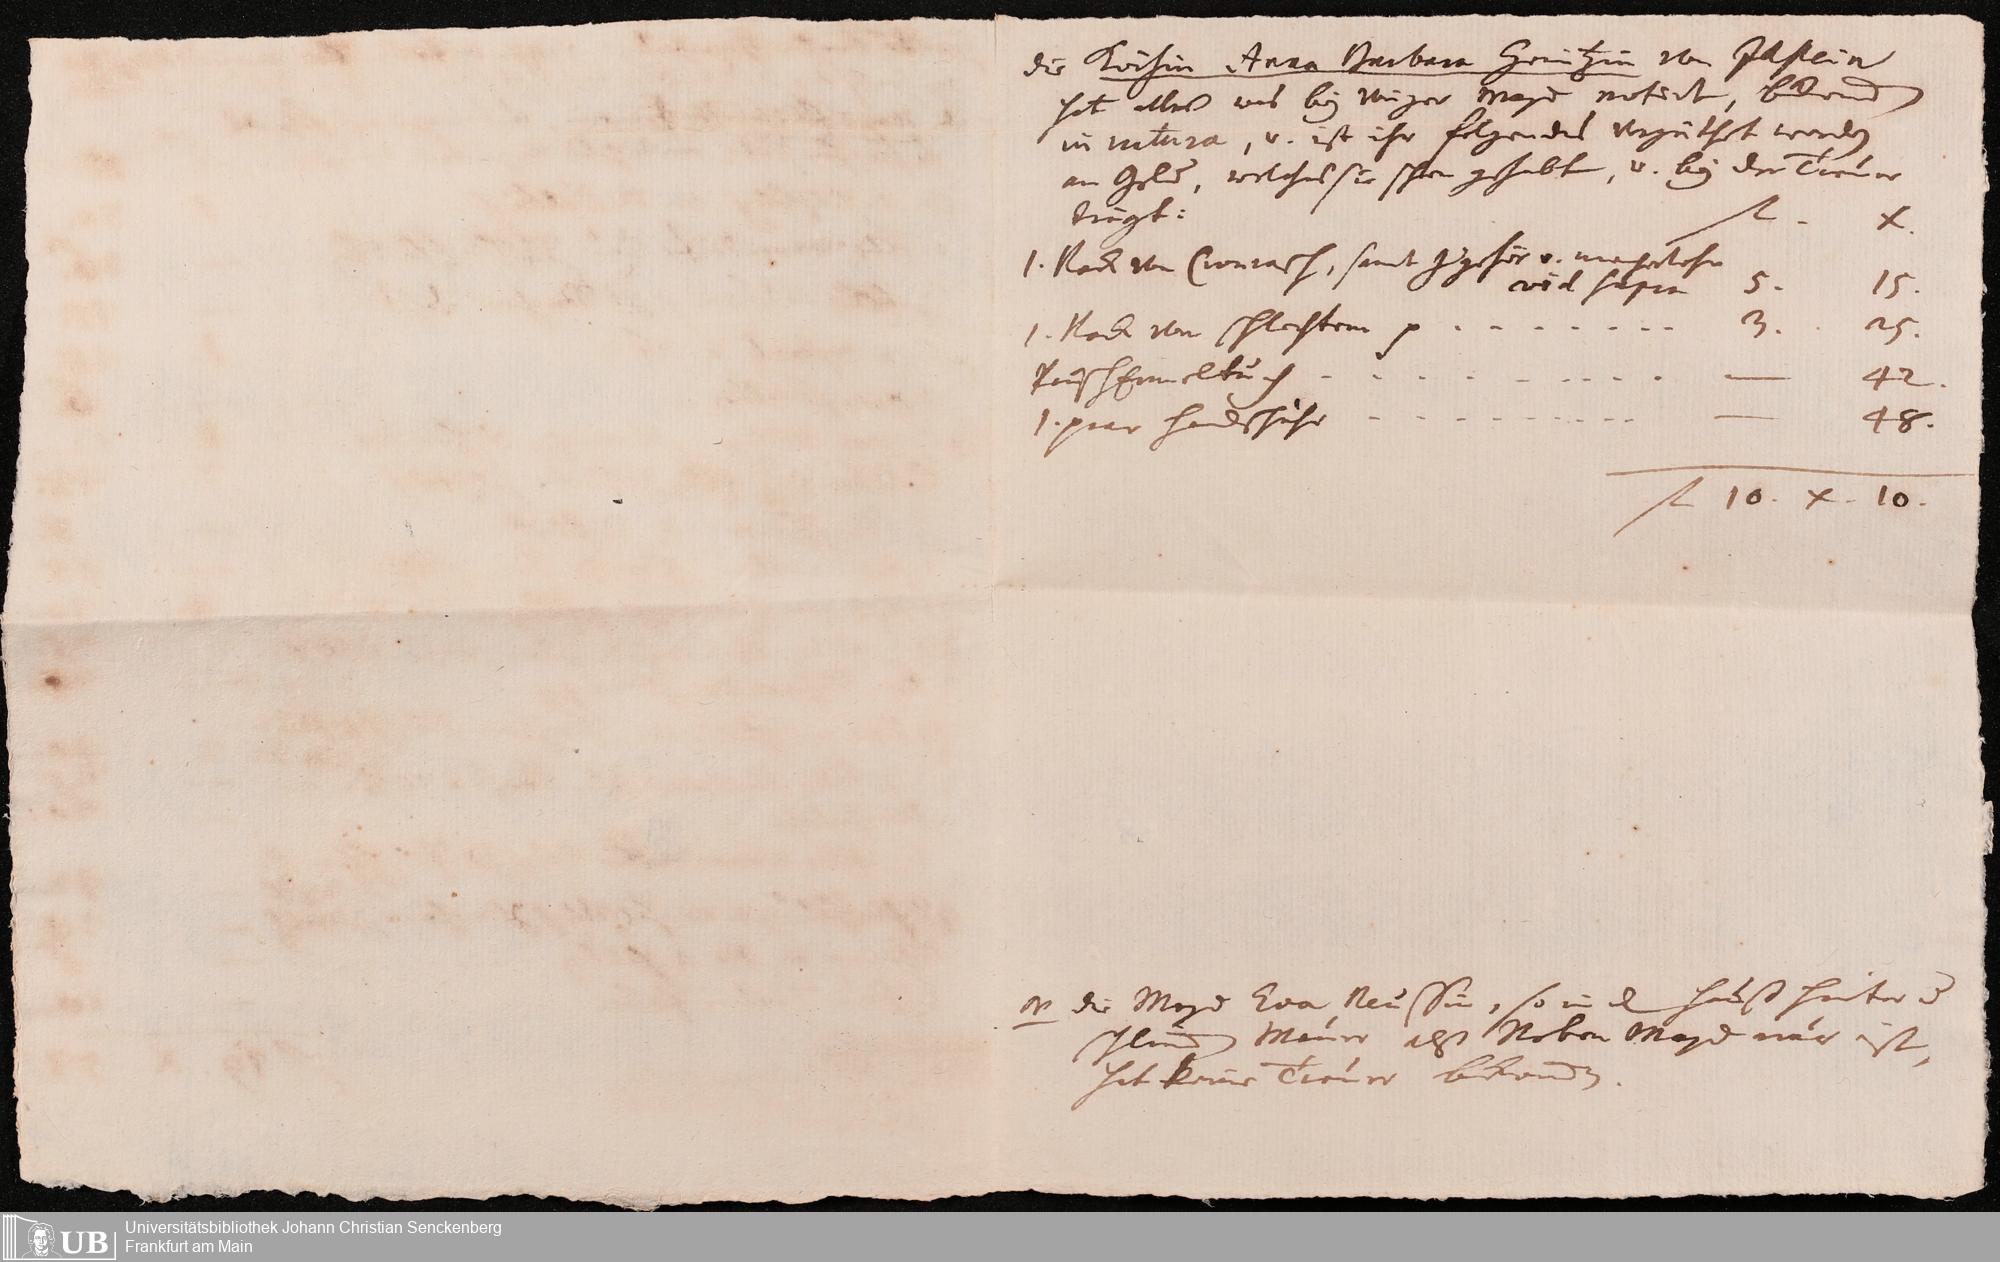 die Köchin Anna Barbara Heinitzin von Idstein
hat alles was bey voriger Magd notirt, bekommen
in natura, u. ist ihr folgendes vergüthet worden
an Geld, welches sie schon gehabt, u. bey der Trauer
trägt:
fl. x.
1. Rock von Cronrasch, samt Zugehör u. macherlohn
vid supra 5. 15.
1. Rock von schlechtem p - - - - - - - 3. 25.
- - - - - - - - - — 42.
1. paar Handschuhe - - - - - - - - — 48.
fl 10. x. 10.
NB die Magd Eva Reussin, so in d Hauß hinter d
schlim Mauer alß Neben Magd nur ist,
hat keine Trauer bekommen.
UB
Universitätsbibliothek Johann Christian Senckenberg
Frankfurt am Main